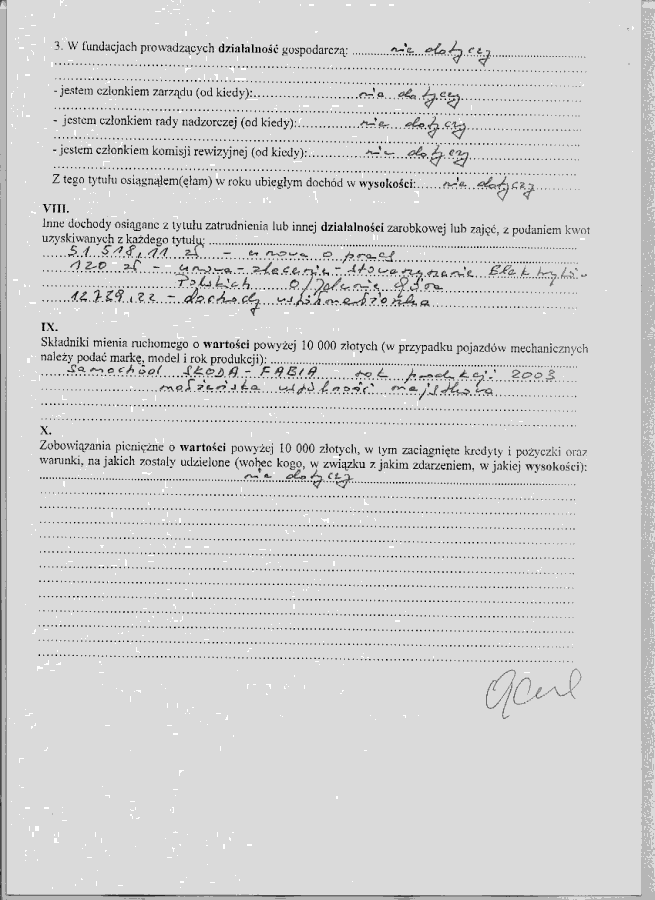 3. W fundacjach prowadzących działalność gospodarczą: nie dotyczy
- jestem członkiem zarządu (od kiedy): nie dotyczy
- jestem członkiem rady nadzorczej (od kiedy): nie dotyczy
- jestem członkiem komisji rewizyjnej (od kiedy): nie dotyczy
Z tego tytułu osiągnąłem(ęłam) w roku ubiegłym dochód w wysokości: nie dotyczy
VIII.
Inne dochody osiągane z tytułu zatrudnienia lub innej działalności zarobkowej lub zajęć, z podaniem kwot
uzyskiwanych z każdego tytułu:
51 518,11 zł - umowa o pracę
120 zł - umowa-zlecenie - Stowarzyszenie Elektryków
Polskich O/Zielona Góra
12 729,22 - dochody współmałżonka
IX.
Składniki mienia ruchomego o wartości powyżej 10 000 złotych (w przypadku pojazdów mechanicznych
należy podać markę, model i rok produkcji):
Samochód SKODA - FABIA rok produkcji 2003
małżeńska wspólność majątkowa
X.
Zobowiązania pieniężne o wartości powyżej 10 000 złotych, w tym zaciągnięte kredyty i pożyczki oraz
warunki, na jakich zostały udzielone (wobec kogo, w związku z jakim zdarzeniem, w jakiej wysokości):
nie dotyczy